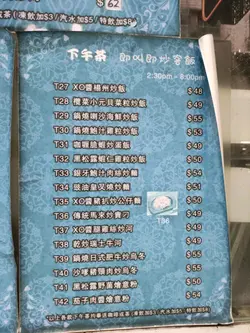 $62
茶 (凍飲加$3 / 汽水加$5 / 特飲加$8)
下午茶 即叫即炒客飯
2:30pm - 6:00pm
T27 XO醬楊州炒飯 $48
T28 欖菜小元貝菜粒炒飯 $49
T29 鍋燒喇沙海鮮炒飯 $55
T30 鍋燒鮑汁雞粒炒飯 $50
T31 咖喱脆蝦炒蛋飯 $50
T32 黑松露蝦仁雞粒炒飯 $50
T33 銀牙鮑汁肉絲炒麵 $50
T34 豉油皇叉燒炒麵
T35 XO醬豬扒炒公仔麵 $50
T36 傳統馬來炒貴刁 $49
T36
T37 XO醬腿雞絲炒河 $49
T38 乾炒瑞士牛河 $49
T39 鍋燒日式肥牛炒烏冬 $55
T40 沙嗲豬頸肉炒烏冬 $50
T41 黑松露野菌燴意粉 $54
T42 茄子肉醬燴意粉 $54